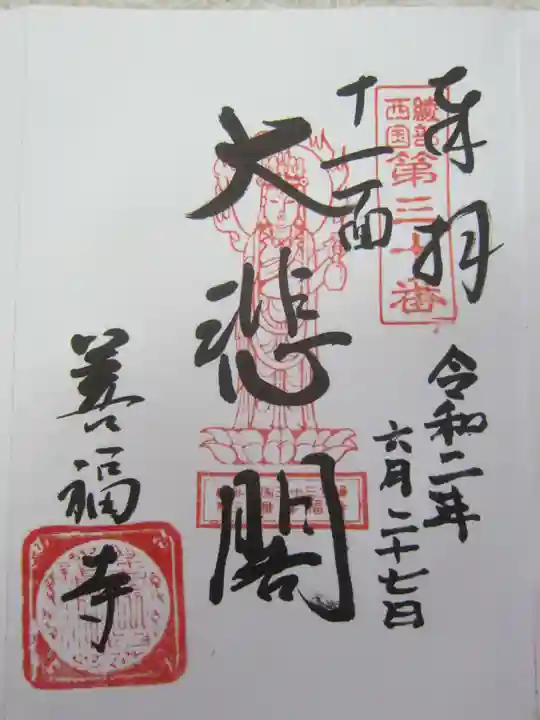 奉拝
綾部
西国
第三十番
令和二年
六月二十七日
十一面
大悲閣
善福寺